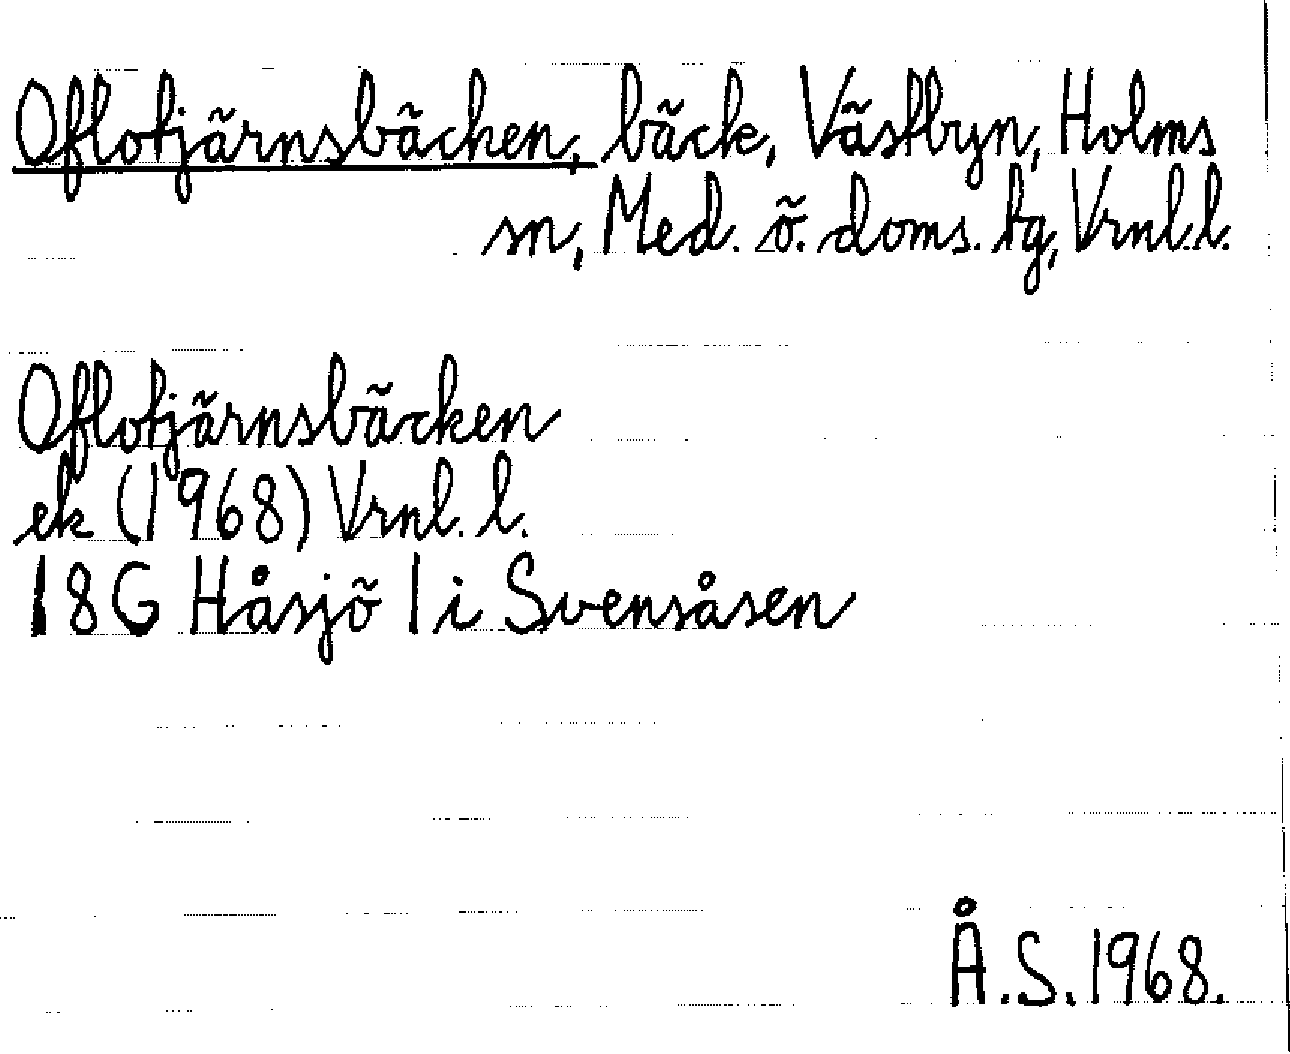 Oflotjärnsbäcken, bäck, Västbyn, Holms
sn, Med. ö. doms. tg, Vrnl.l.
Oflotjärnsbäcken
ek (1968) Vrnl. l.
18G Håsjö 1 i Svensåsen
Å.S. 1968.